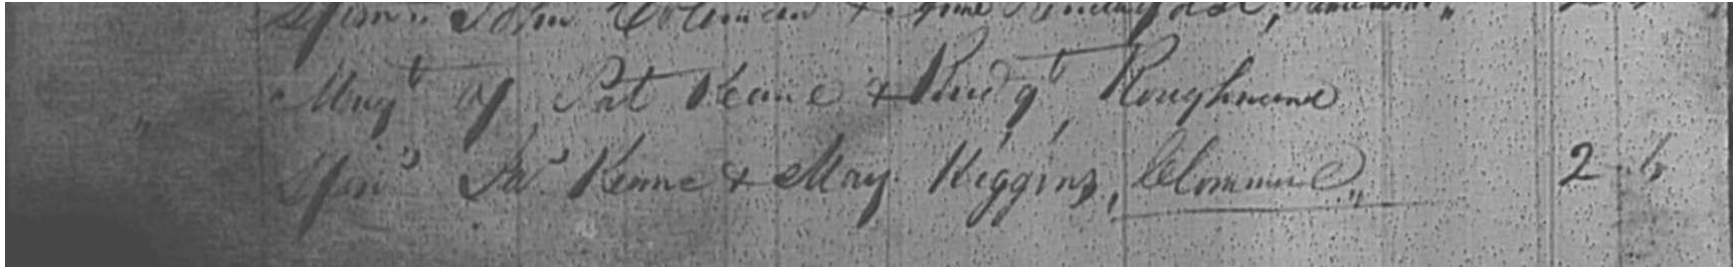 Spon.rs John Coleman & Anne
Marg.t of Pat Keane & Bridg.t Roughnane
Spon.s Ja.s Keane & Mary Higgins, Clommine,, 2 - 6